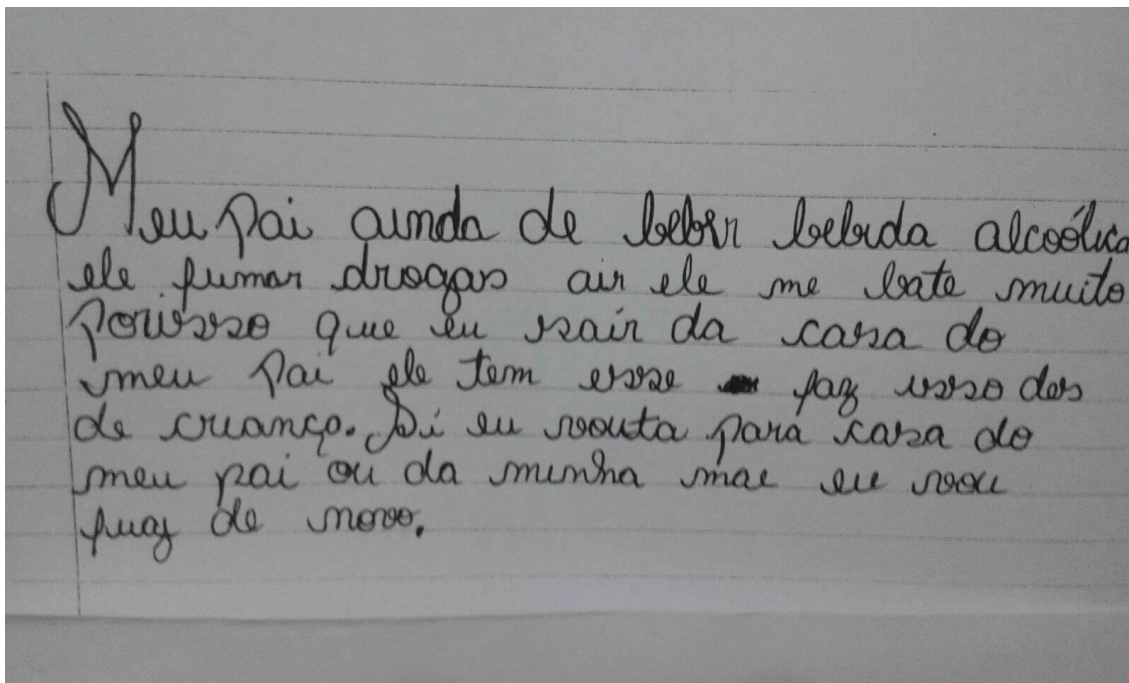 Meu Pai ainda de beber bebida alcoólica
ele fumar drogas air ele me bate muito
Porisso que eu sair da casa do
meu Pai ele tem esse faz isso des
de criança. Si eu vouta para casa do
meu pai ou da minha mae eu vou
fugz de novo.